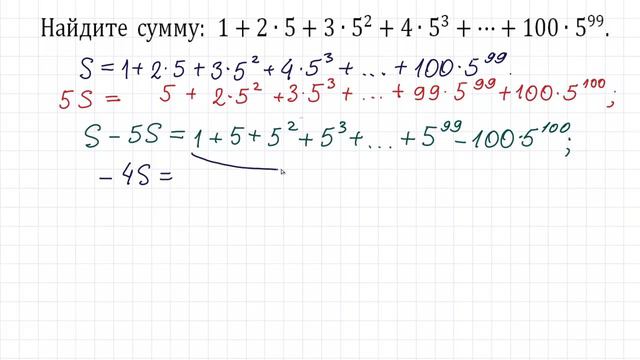 Найдите сумму: 1 + 2 · 5 + 3 · 5² + 4 · 5³ + ⋯ + 100 · 5⁹⁹.
S = 1 + 2·5 + 3·5² + 4·5³ + ... + 100·5⁹⁹.
5S = 5 + 2·5² + 3·5³ + ... + 99·5⁹⁹ + 100·5¹⁰⁰;
S − 5S = 1 + 5 + 5² + 5³ + ... + 5⁹⁹ − 100·5¹⁰⁰;
− 4S =